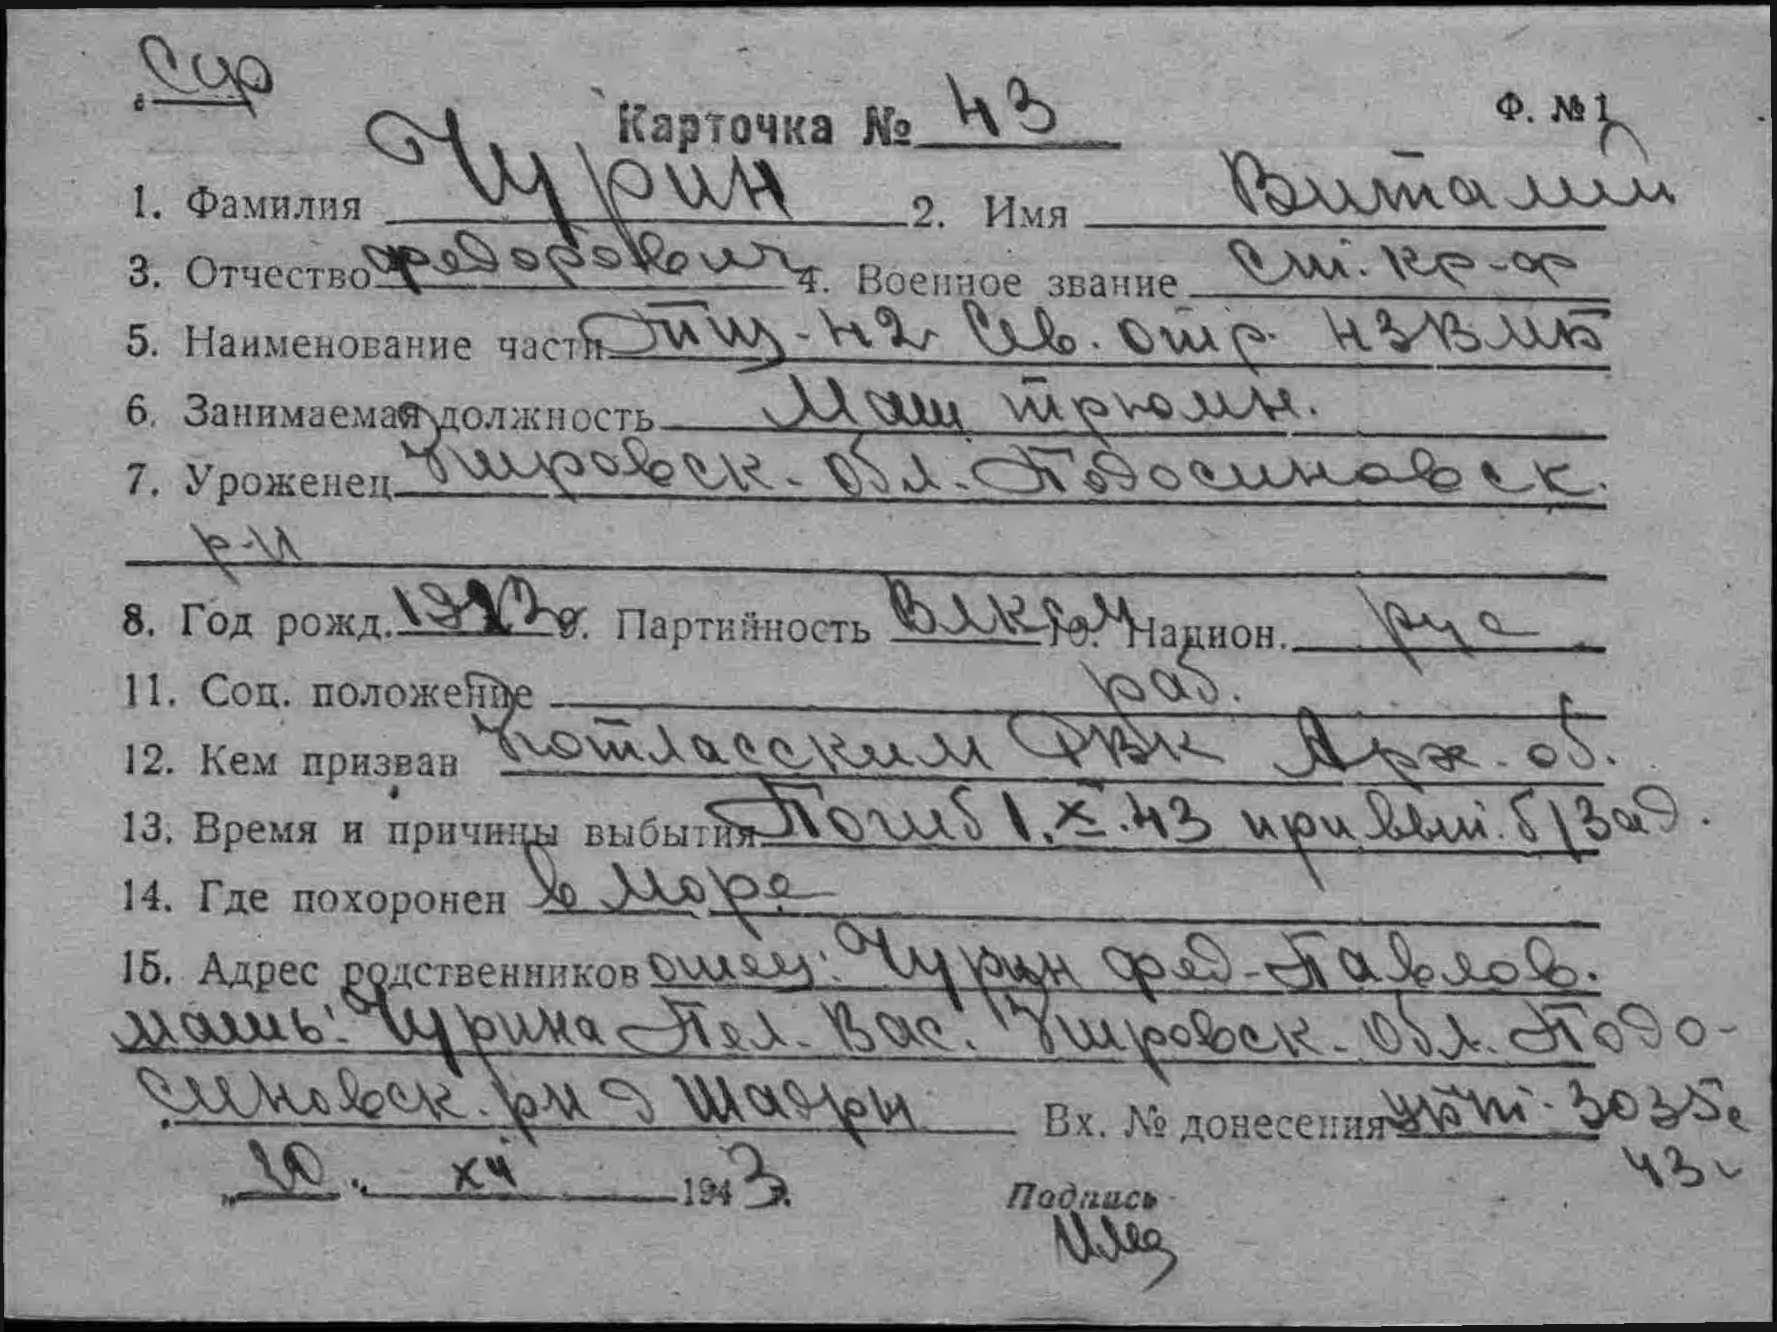 Карточка № 43 Ф. №1
1. Фамилия Чурин 2. Имя Виталий
3. Отчество Федорович 4. Военное звание Ст. кр-ф
5. Наименование части ТЩ-42 Сев. отр. НЗВМБ
6. Занимаемая должность Маш трюмн.
7. Уроженец Кировск. обл. Подосиновск.
р-н
8. Год рожд. 9. Партийность ВЛКСМ 10. Национ. рус
11. Соц. положение раб.
12. Кем призван Котласским РВК Арх. об.
13. Время и причины выбытия Погиб 1.X.43 при вып. б/зад.
14. Где похоронен в море
15. Адрес родственников отец: Чурин Фед. Павлов.
мать: Чурина Пел. Вас. Кировск. обл. Подо-
синовск. р-н д Вх. № донесения 3035с
43г
XII 1943г.
Подпись